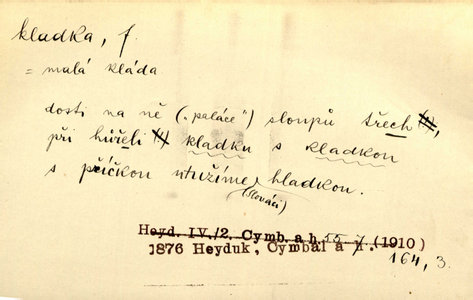 kladka, f.
= malá kláda
dosti na ně („paláce“) sloupů třech (!),
při hůřeli (!) kladku s kladkou
s příčkou utužíme hladkou.
(Slováci)
Heyd. IV./2. Cymb. a h. 55, 7. (1910)
1876 Heyduk, Cymbál a h.
164, 3.